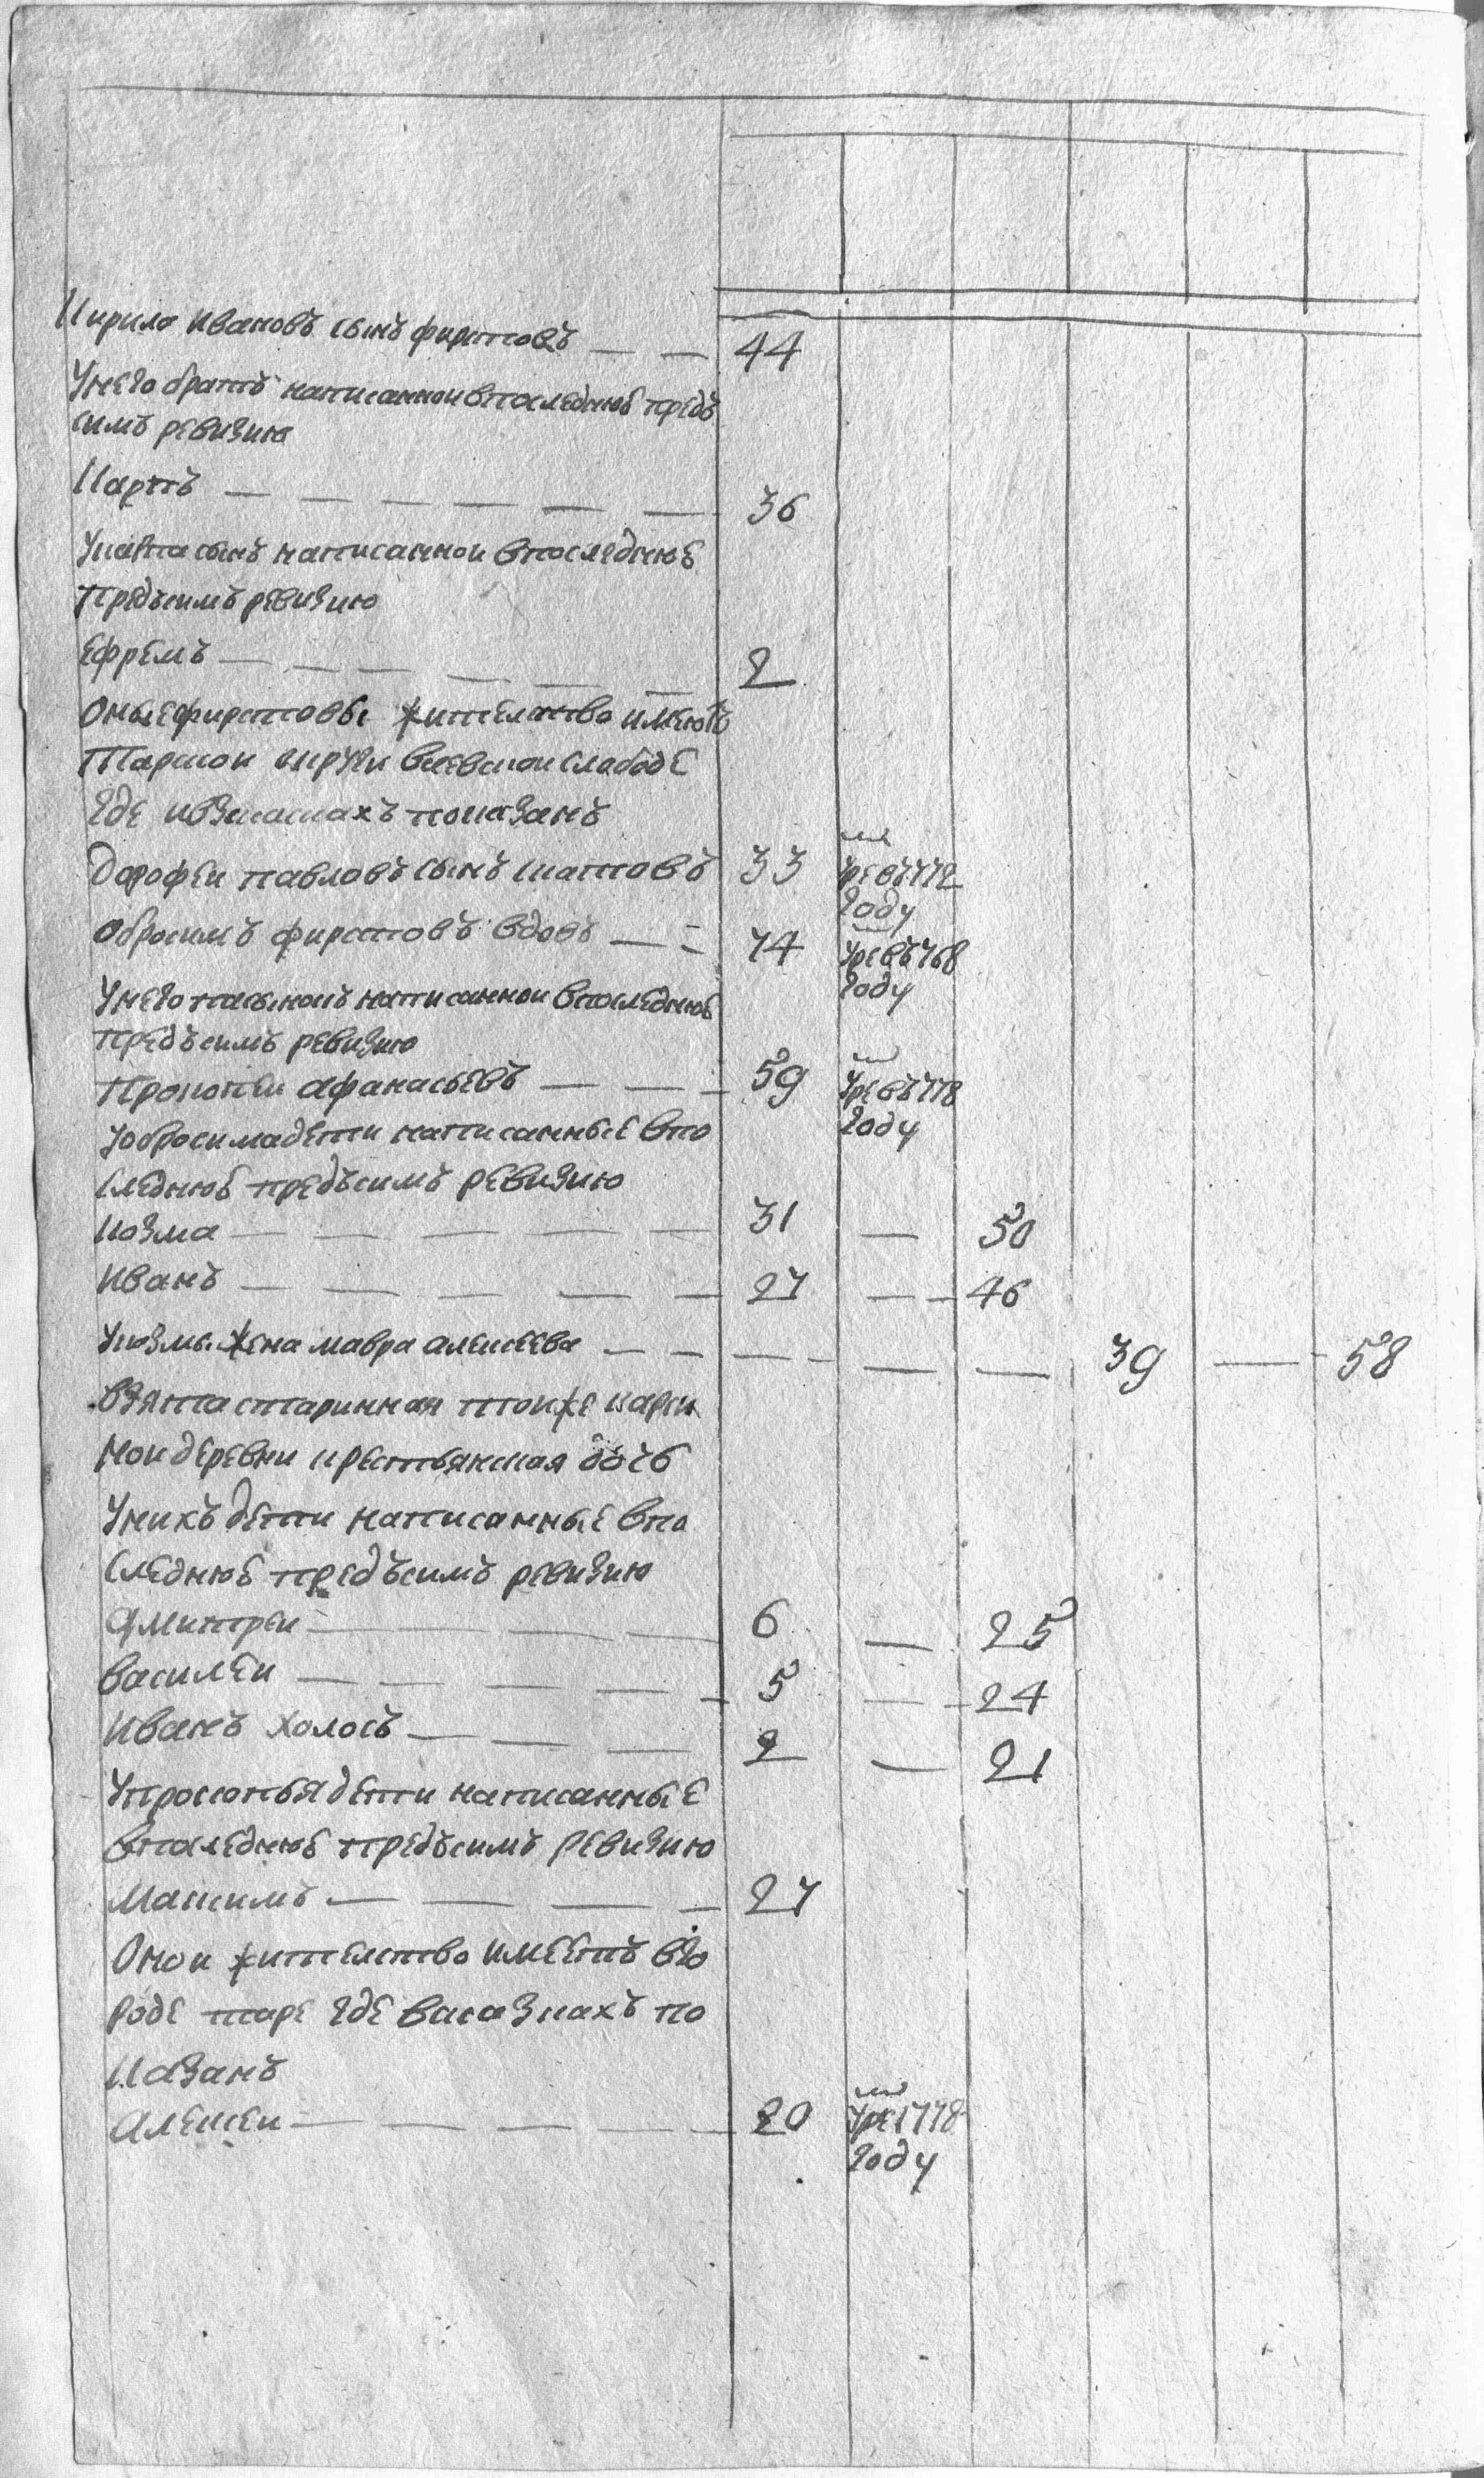 Кирило Ивановъ сынъ фирстовъ — — 44
Унего братъ написанной впоследнюю предъ
симъ ревизию
Карпъ — — — — — — 36
Укарпа сынъ написанной впоследнюю
предъсимъ ревизию
Ефремъ — — — — — — 2
Оные фирстовы жителство имеютъ
Тарской округи
где ивзсказкахъ показанъ
дорофеи павловъ сынъ шатовъ 33 умре въ 772
году
обросимъ фирстовъ вдовъ — — 74 умре въ 768
году
Унего написанной впоследнюю
предъсимъ ревизию
прокопеи афанасьевъ — — — 59 умре въ 778
году
Уобросима дети написанные впо
следнюю предъсимъ ревизию
козма — — — — — 31 — 50
Иванъ — — — — — 27 — — 46
Укозмы жена мавра алексеева — — — — — — 39 — 58
взята старинная тоиже
ной деревни крестьянская дочь
Унихъ дети написанные впо
следнюю предъсимъ ревизию
дмитреи — — — — 6 — 25
василеи — — — — — 5 — — 24
Иванъ холосъ — — — 2 — 21
Упрокопья дети написанные
впоследнюю предъсимъ ревизию
Максимъ — — — — 27
Оной жителство имеетъ вго
роде таре где всказкахъ по
казанъ
алексеи — — — — — 20 умре 1778
году